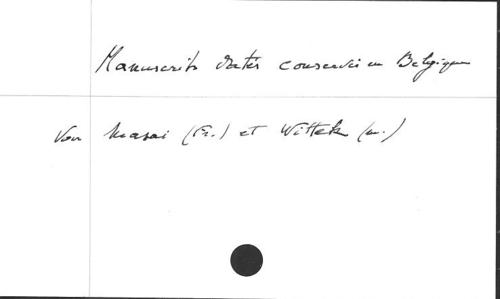 Manuscrits datés conservés en Belgique
Voir Masai (Fr.) et Wittek (M.)